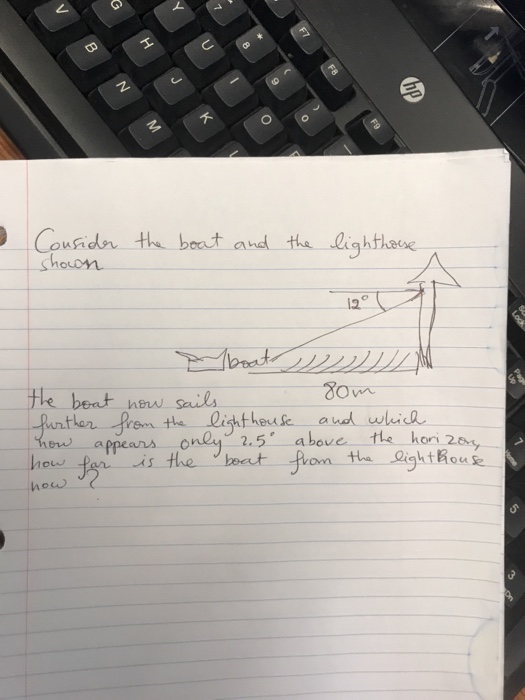 Consider the boat and the lighthouse
shown
12°
boat
80m
the boat now sails
further from the lighthouse and which
now appears only 2.5° above the horizon,
how far is the boat from the lighthouse
now ?
hp
F7
F8
F9
V
B
N
M
G
H
J
K
Y
U
I
O
7
8
9
0